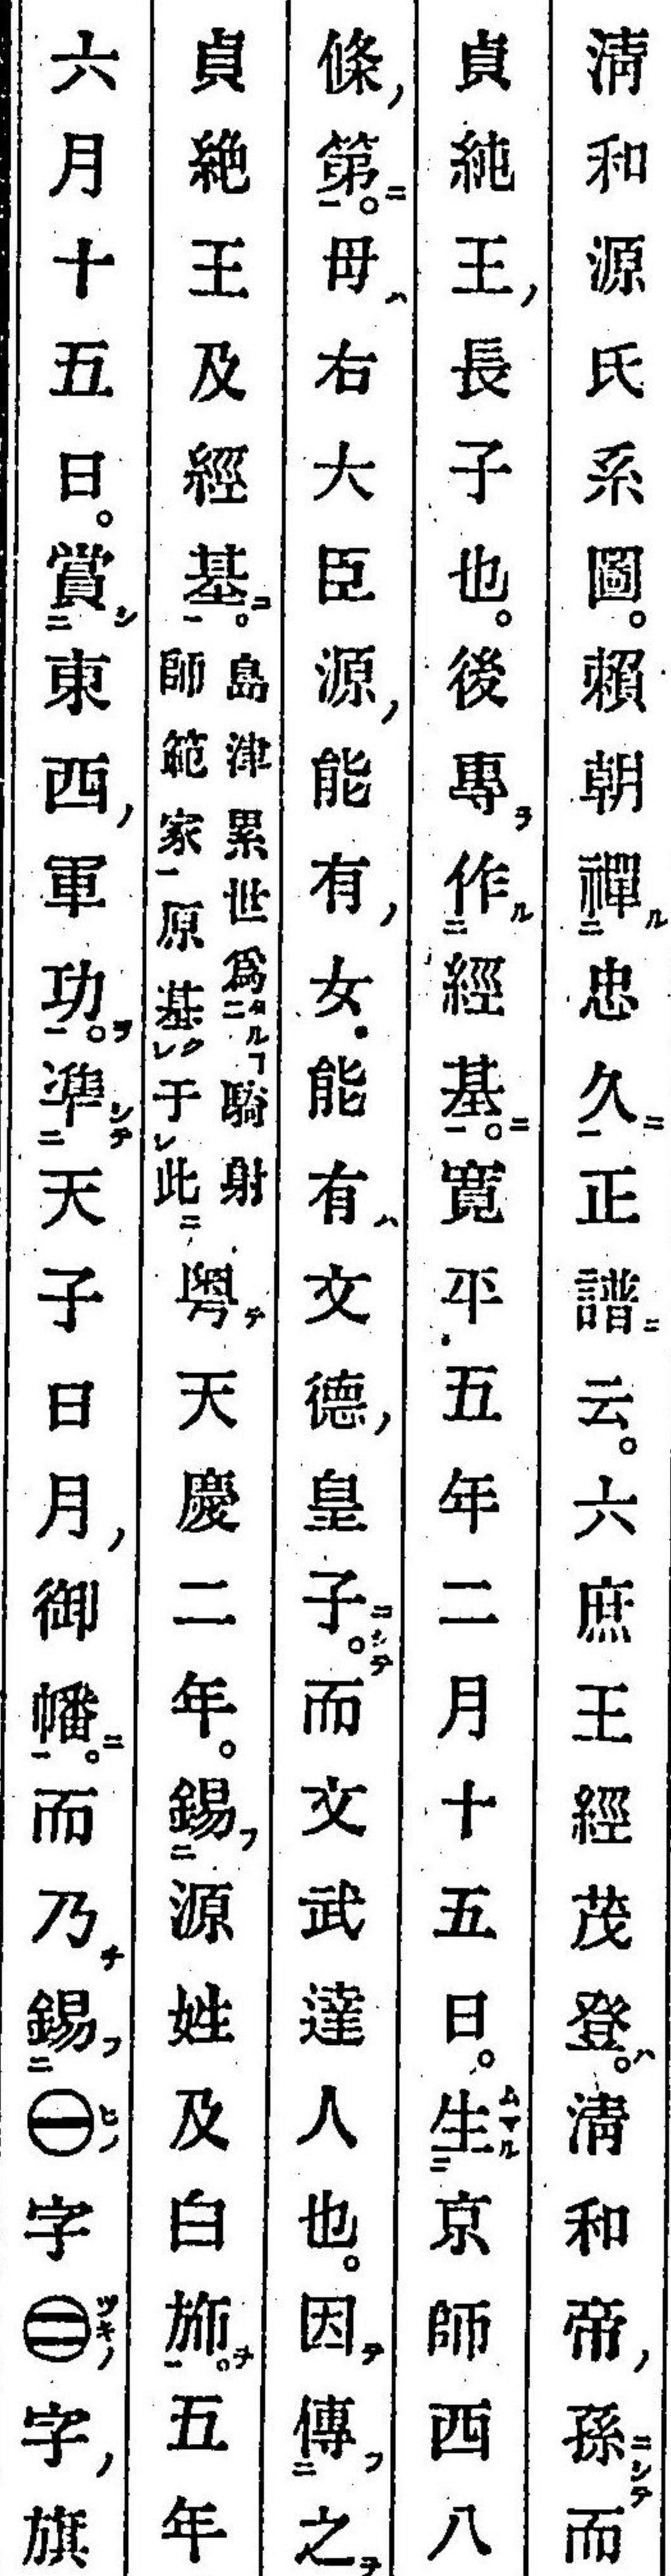 淸和源氏系圖。賴朝禪ル二忠久ニ一正譜ニ云。六庶王經茂登ハ。淸和帝ノ孫ニシテ而
貞純王ノ長子也。後專ヲ作ル二經基ニ一。寬平五年二月十五日。生ムマル二京師西八
條ノ第ニ一。母ハ右大臣源ノ能有ノ女。能有ハ文德ノ皇子ニシテ。而文武達人也。因テ傳フ二之ヲ
貞絶王及經基ニ一。島津累世爲タルコ二騎射
師範家一原基クレ于レ此ニ粤テ天慶二年。錫フ二源姓及白旆ヲ一。五年
六月十五日。賞シ二東西ノ軍功ヲ一。準シテ二天子日月ノ御幡ニ一。而乃チ錫フ二㊀ヒノ字㊁ツキノ字ノ旗